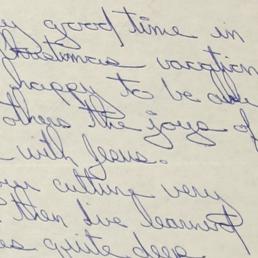 y good time in
Christmas vacation
happy to be able
others the joys of
with Jesus.
our cutting very
then I've learned
es quite deep